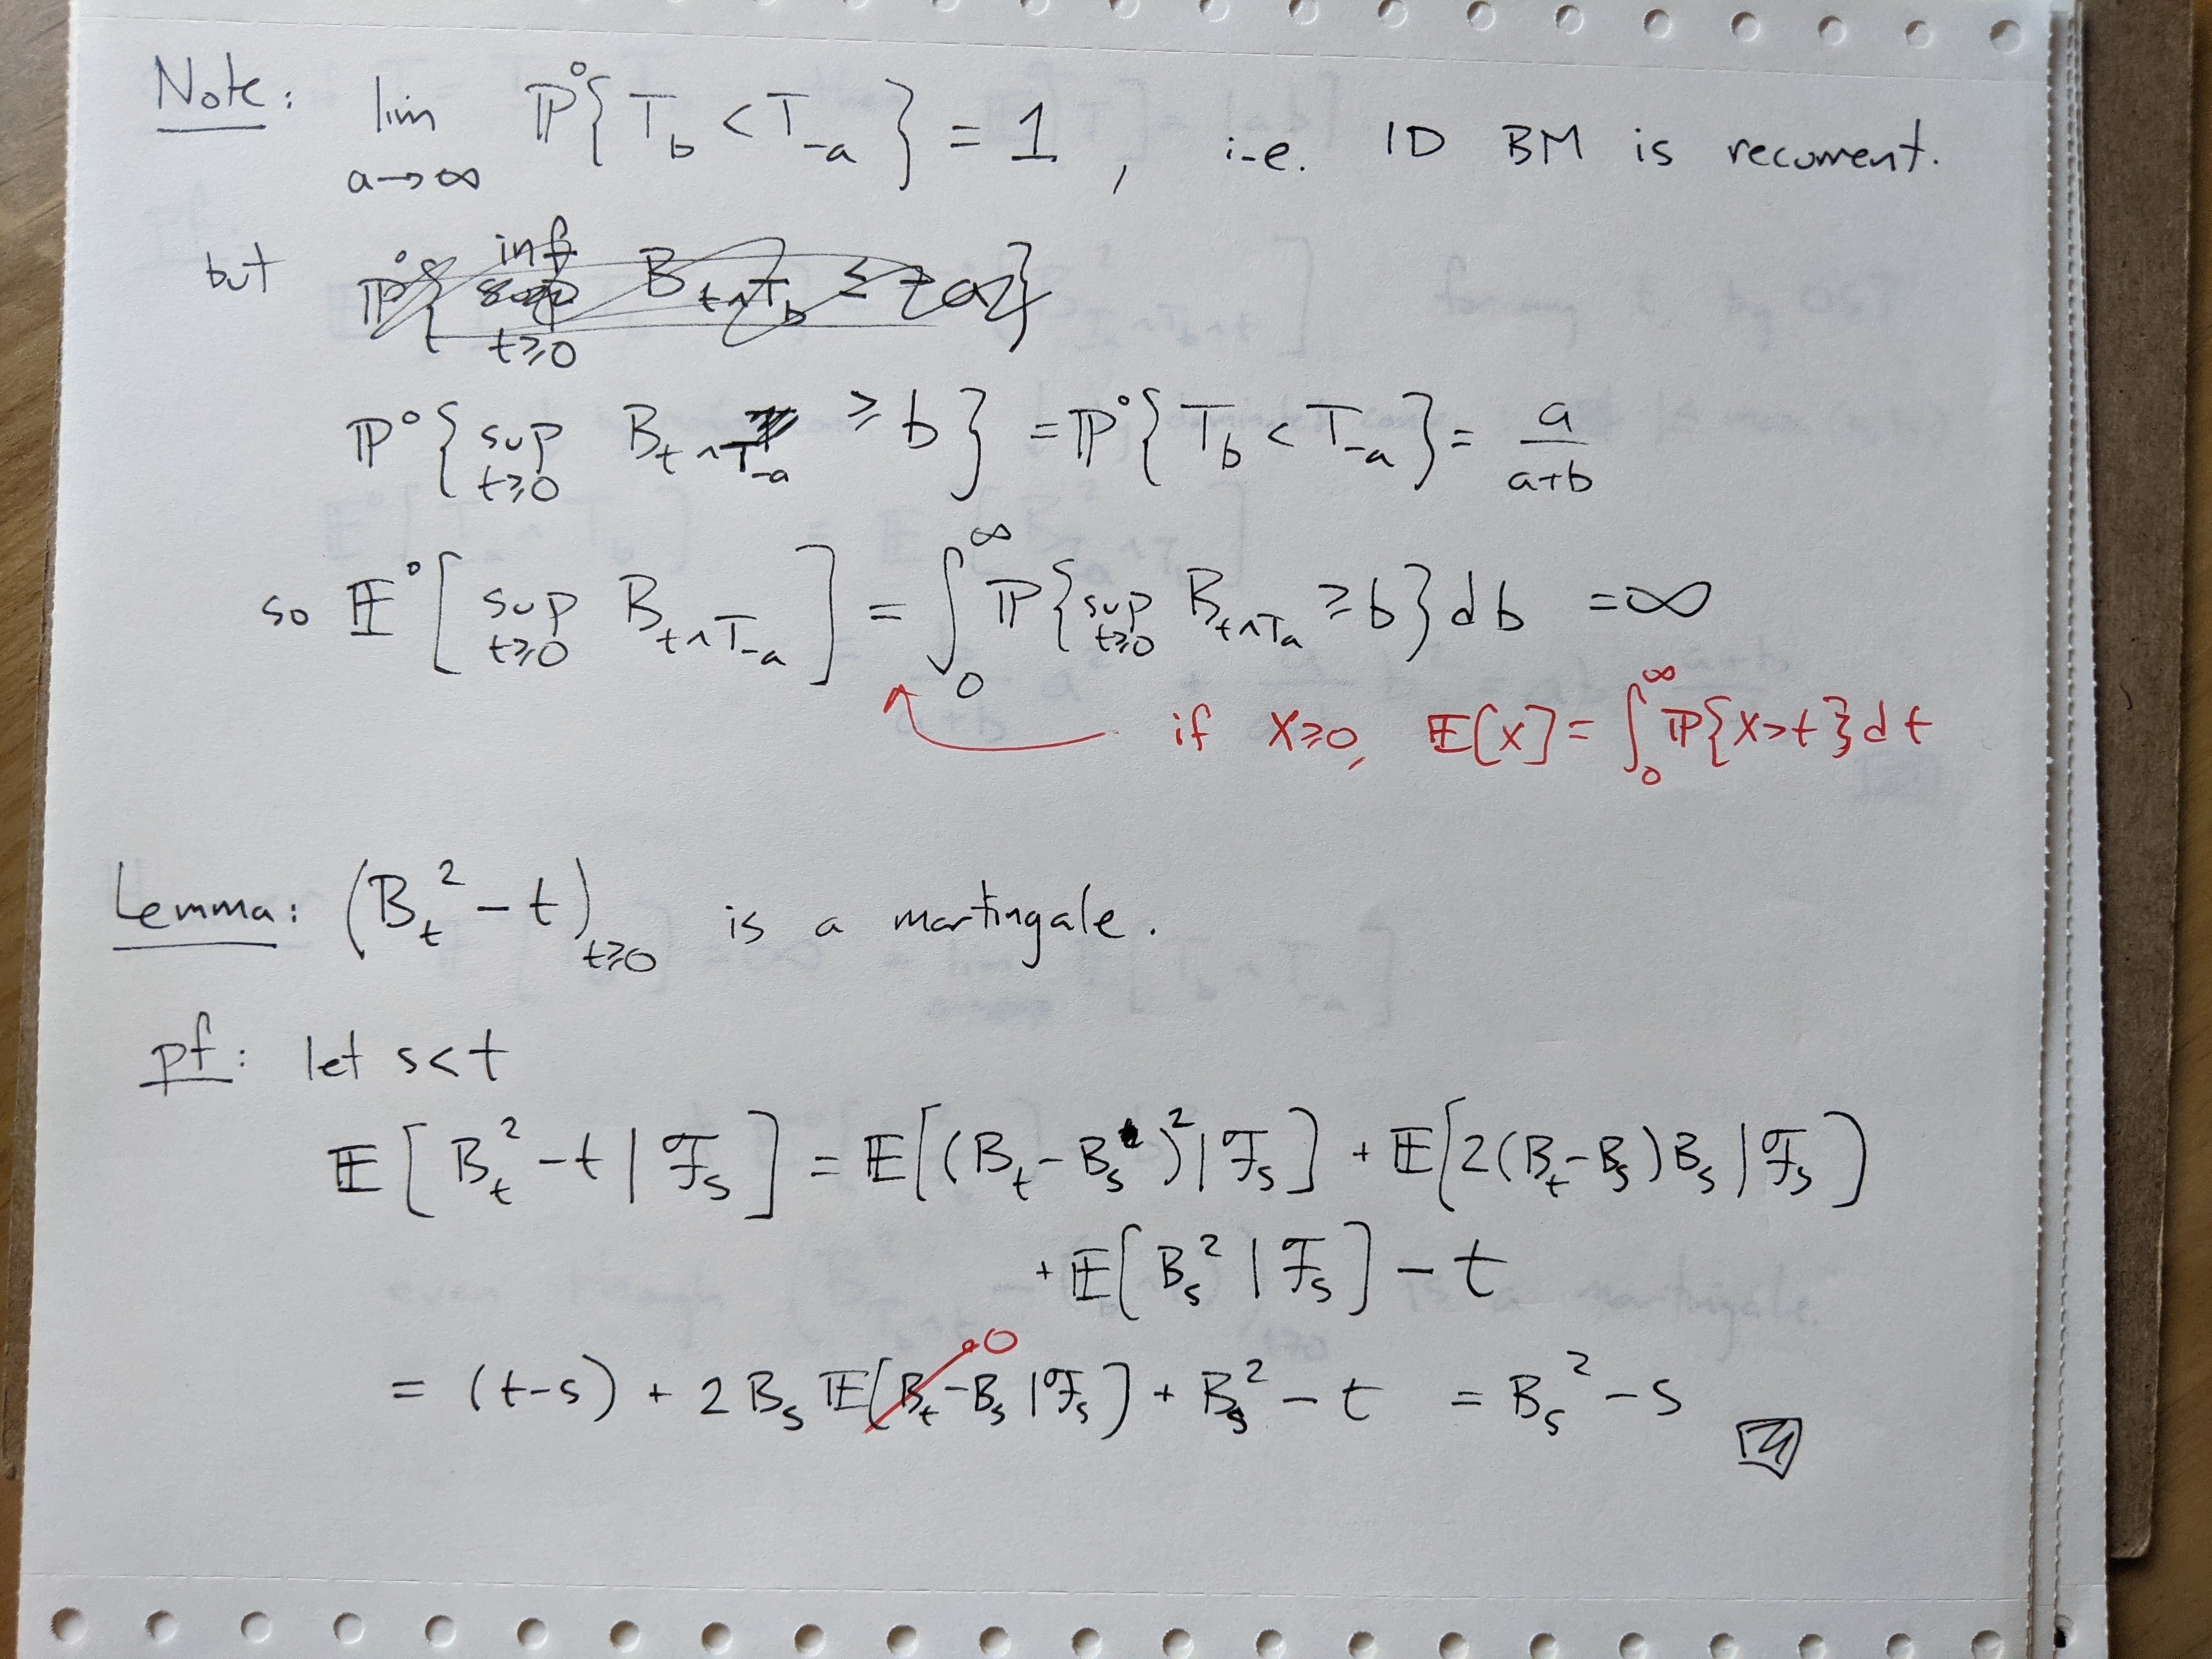 Note: lim_{a→∞} ℙ°{T_b < T_{-a}} = 1, i.e. 1D BM is recurrent.
but ℙ°{inf_{t≥0} B_{t∧T_b} ≤ -a}
ℙ°{sup_{t≥0} B_{t∧T_{-a}} ≥ b} = ℙ°{T_b < T_{-a}} = a/(a+b)
so 𝔼°[sup_{t≥0} B_{t∧T_{-a}}] = ∫_0^∞ ℙ{sup_{t≥0} B_{t∧T_a} ≥ b} db = ∞
if X≥0, 𝔼[X] = ∫_0^∞ ℙ{X>t} dt
Lemma: (B_t^2 - t)_{t≥0} is a martingale.
pf: let s<t
𝔼[B_t^2 - t | ℱ_s] = 𝔼[(B_t - B_s)^2 | ℱ_s] + 𝔼[2(B_t - B_s)B_s | ℱ_s]
+ 𝔼[B_s^2 | ℱ_s] - t
= (t-s) + 2B_s 𝔼[B_t - B_s | ℱ_s] + B_s^2 - t = B_s^2 - s
0